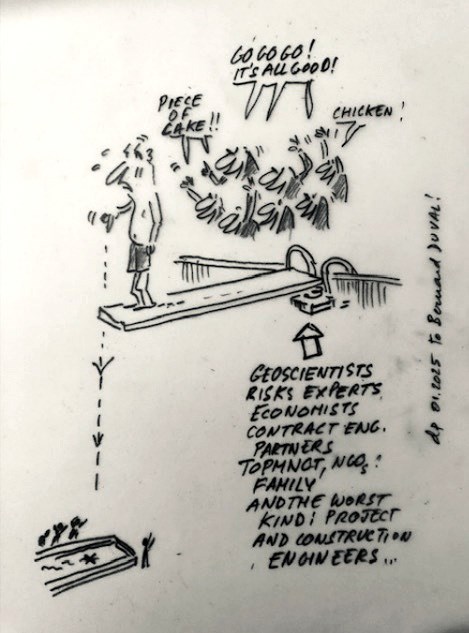 GO GO GO!
IT'S ALL GOOD!
PIECE
OF
CAKE!!
CHICKEN!
GEOSCIENTISTS
RISKS EXPERTS
ECONOMISTS
CONTRACT ENG.
PARTNERS
TOPMNGT, NGOs:
FAMILY
AND THE WORST
KIND: PROJECT
AND CONSTRUCTION
ENGINEERS...
dp 01.2025 to Bernard DUVAL!